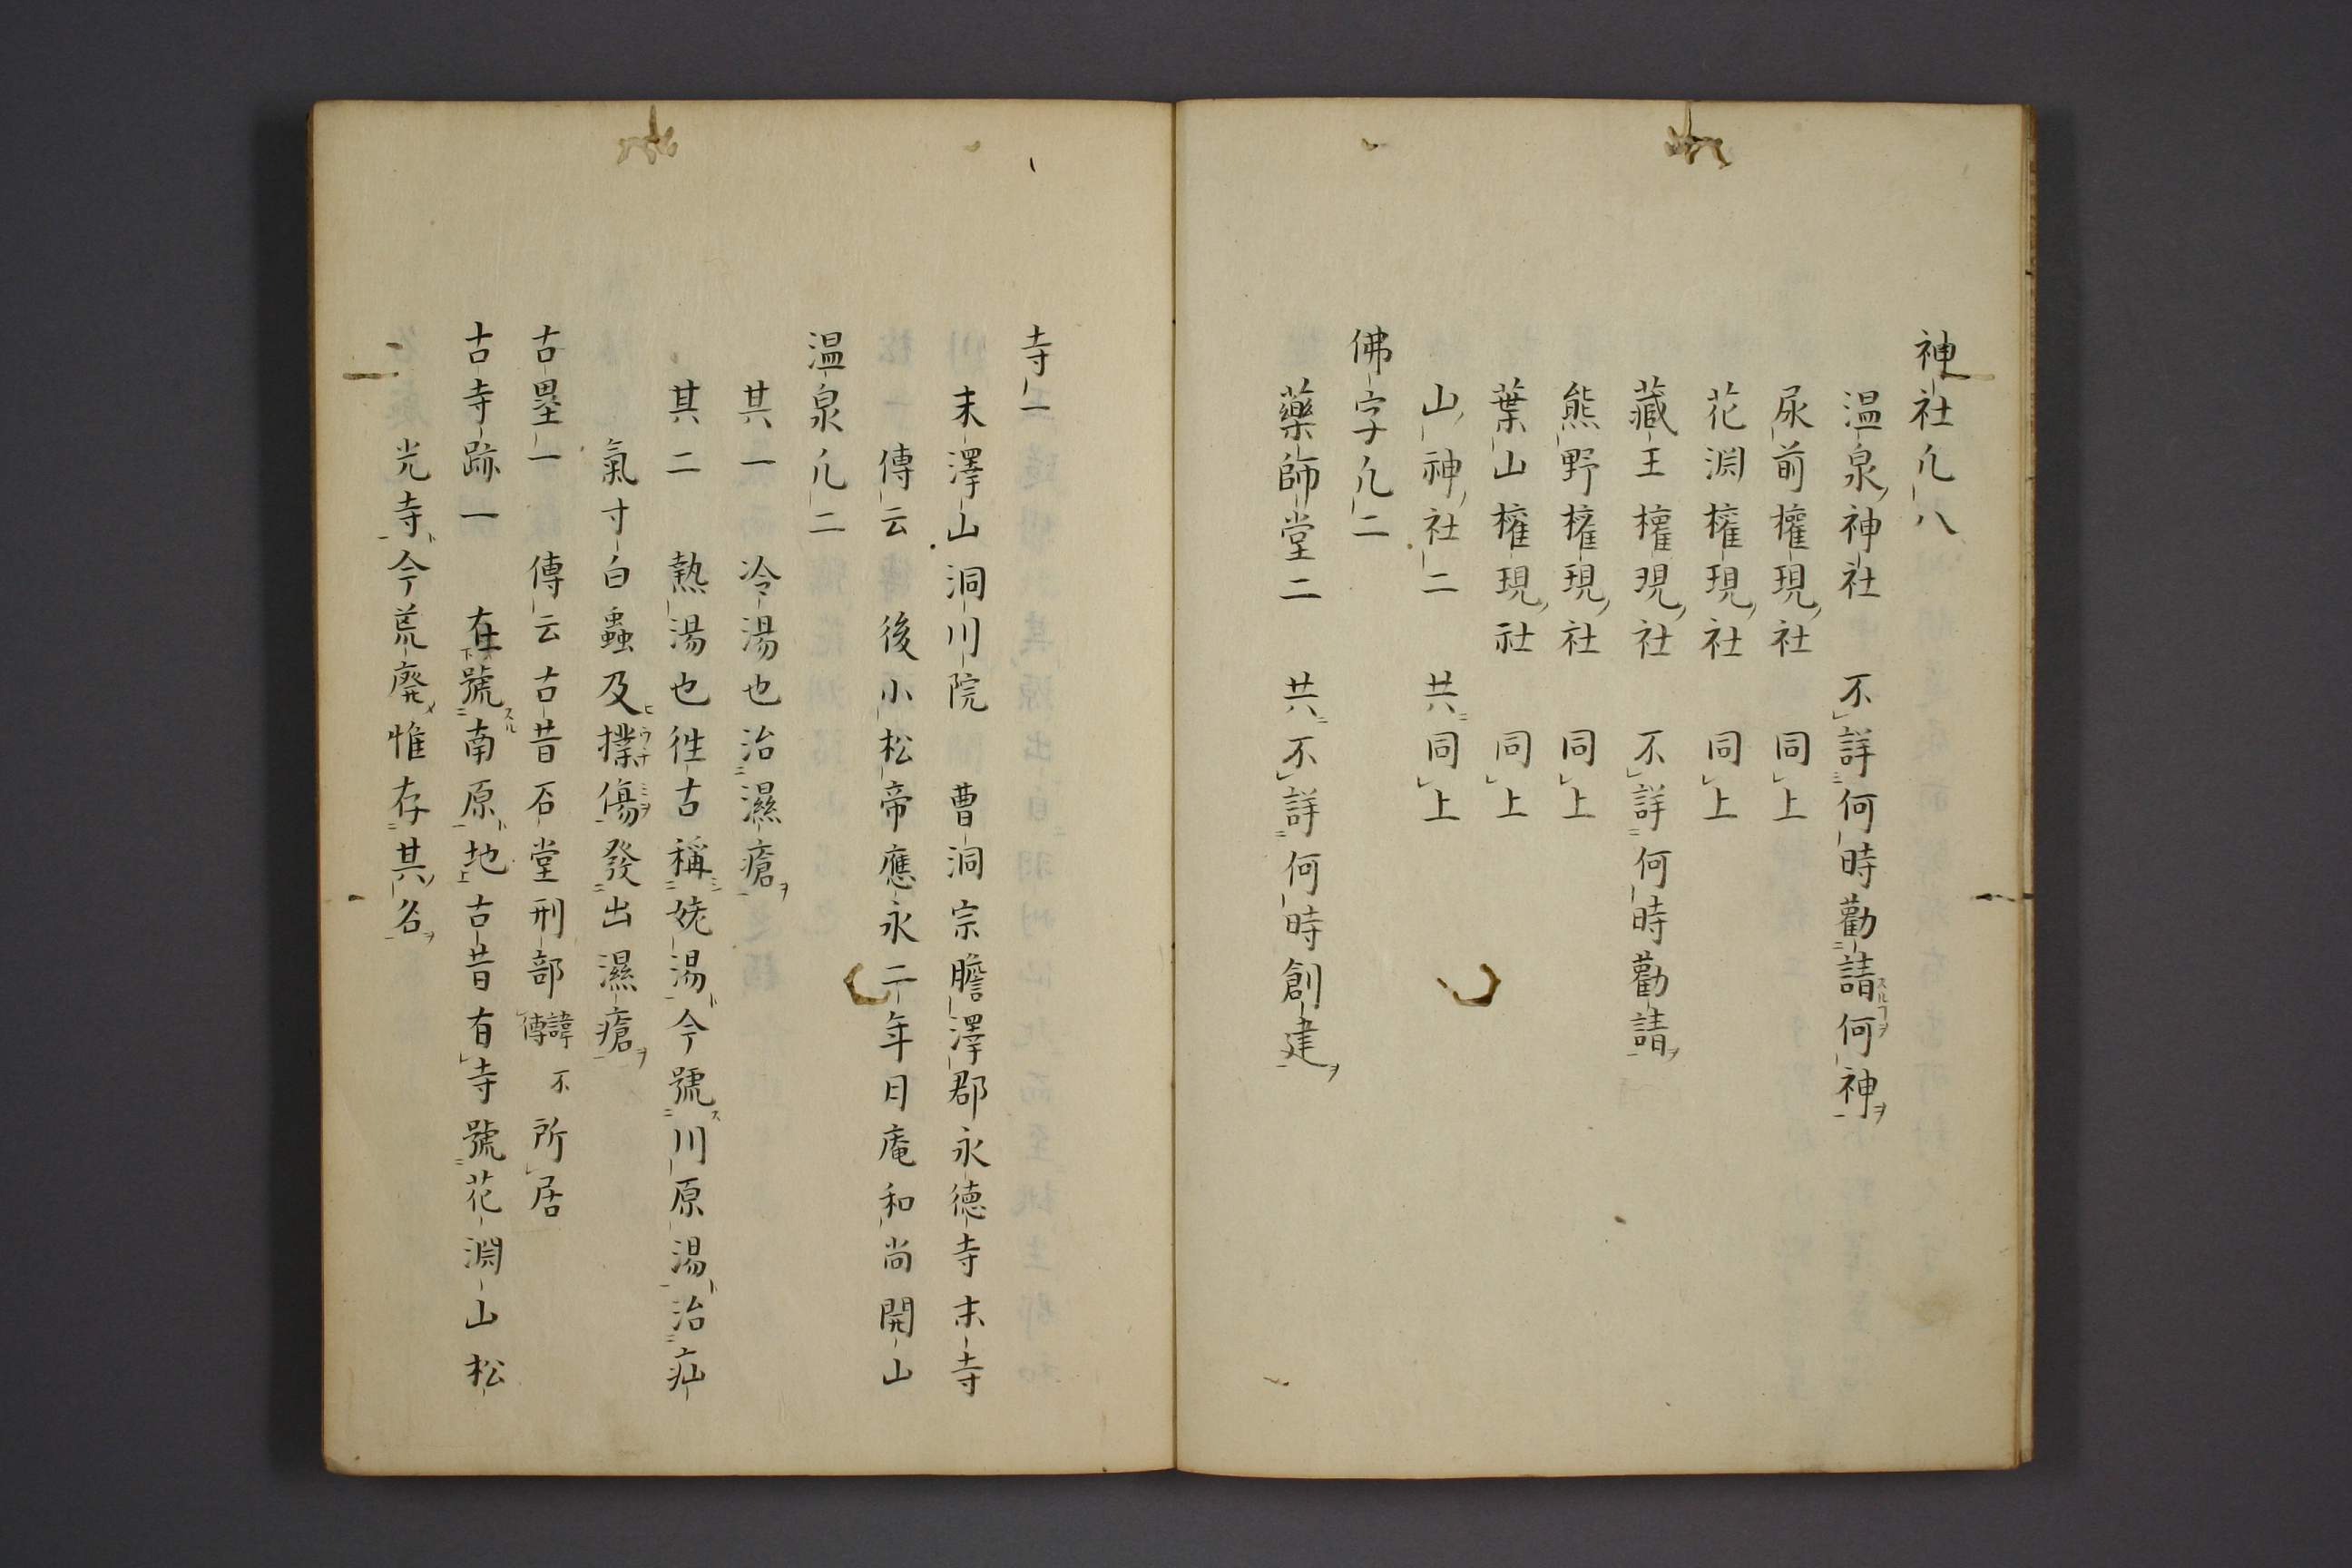 神社凢八
温泉神社　不詳何時勸請スルヿヲ何神ヲ
尿前權現社　同上
花淵權現社　同上
藏王權現社　不詳何時勸請ヲ
熊野權現社　同上
葉山權現社　同上
山神社二　共同上
佛宇凢二
藥師堂二　共不詳何時創建ヲ
寺一
末澤山洞川院　曹洞宗膽澤郡永德寺末寺
傳云　後小松帝應永二年日庵和尚開山
温泉凢二
其一　冷湯也治濕瘡ヲ
其二　熱湯也徃古稱姥湯ト今號ス川原湯ト治疝
氣寸白蟲及ヒ撲傷ヲ發出濕瘡ヲ
古壘一　傳云古昔石堂刑部諱不傳所居
古寺跡一　在號スル南原ト地古昔有寺號花淵山松
光寺ト今荒廢メ惟存其名ヲ